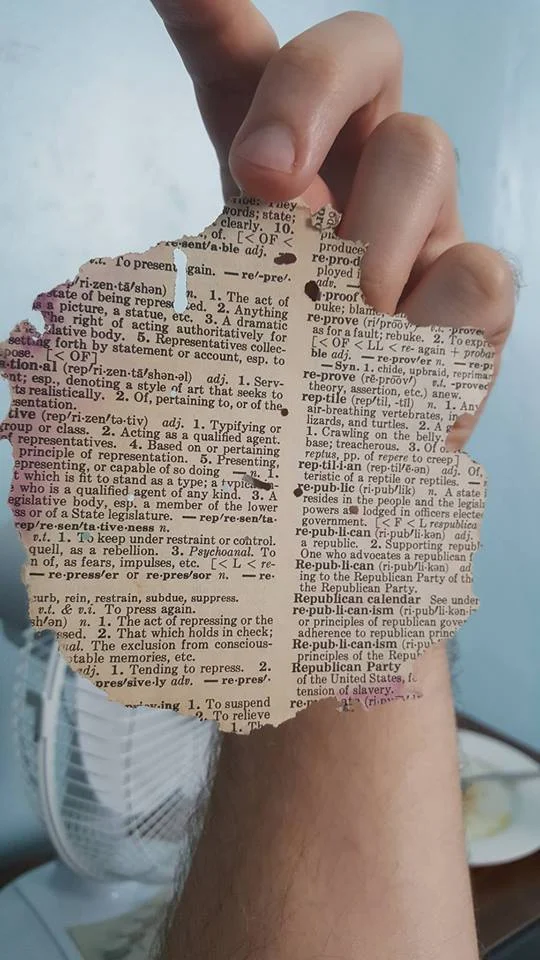 words; state;
clearly. 10.
of. [< OF <
re·sent/a·ble adj.
v.t. To present again. — re/-pre/-
/ri·zen·tā/shən) n. 1. The act of
state of being represented. 2. Anything
as a picture, a statue, etc. 3. A dramatic
The right of acting authoritatively for
lative body. 5. Representatives collec-
setting forth by statement or account, esp. to
pose. [< OF]
a·tion·al (rep/ri·zen·tā/shən·əl) adj. 1. Serv-
nt; esp., denoting a style of art that seeks to
ts realistically. 2. Of, pertaining to, or of the
sentation.
tive (rep/ri·zen/tə·tiv) adj. 1. Typifying or
group or class. 2. Acting as a qualified agent.
f representatives. 4. Based on or pertaining
principle of representation. 5. Presenting,
epresenting, or capable of so doing — n. 1.
t which is fit to stand as a type; a typical
who is a qualified agent of any kind. 3. A
egislative body, esp. a member of the lower
ss or of a State legislature. — rep/re·sen/ta-
rep/re·sen/ta·tive·ness n.
v.t. 1. To keep under restraint or control.
quell, as a rebellion. 3. Psychoanal. To
n of, as fears, impulses, etc. [< L re-
— re·press/er or re·pres/sor n. — re-
curb, rein, restrain, subdue, suppress.
v.t. & v.i. To press again.
sh/ən) n. 1. The act of repressing or the
ssed. 2. That which holds in check;
ual. The exclusion from conscious-
table memories, etc.
adj. 1. Tending to repress. 2.
pres/sive·ly adv. — re·pres/-
1. To suspend
2. To relieve
1. The
produce
re·pro·d
ployed i
proof
buke; blame
re·prove (ri·prōōv/) v.t. ·proved
as for a fault; rebuke. 2. To expre
[< OF < LL < re- again + probar
ble adj. — re·prov/er n. — re·pr
— Syn. 1. chide, upbraid, reprima
re-prove (rē·prōōv/) v.t. -proved
theory, assertion, etc.) anew.
rep·tile (rep/til, -tīl) n. 1. Any
air-breathing vertebrates, in
lizards, and turtles. 2. A
1. Crawling on the belly.
base; treacherous. 3. Of o
reptus, pp. of repere to creep]
rep·til·i·an (rep·til/ē·ən) adj. Of,
teristic of a reptile or reptiles.
re·pub·lic (ri·pub/lik) n. A state i
resides in the people and the legisl
powers are lodged in officers elected
government. [< F < L respublica
re·pub·li·can (ri·pub/li·kən) adj.
a republic. 2. Supporting republ
One who advocates a republican f
Re·pub·li·can (ri·pub/li·kən) ad
ing to the Republican Party of the
the Republican Party.
Republican calendar See under
re·pub·li·can·ism (ri·pub/li·kən·iz
or principles of republican gove
adherence to republican princ
Re·pub·li·can·ism (ri·pub
principles of the Repub
Republican Party
of the United States, fo
tension of slavery.